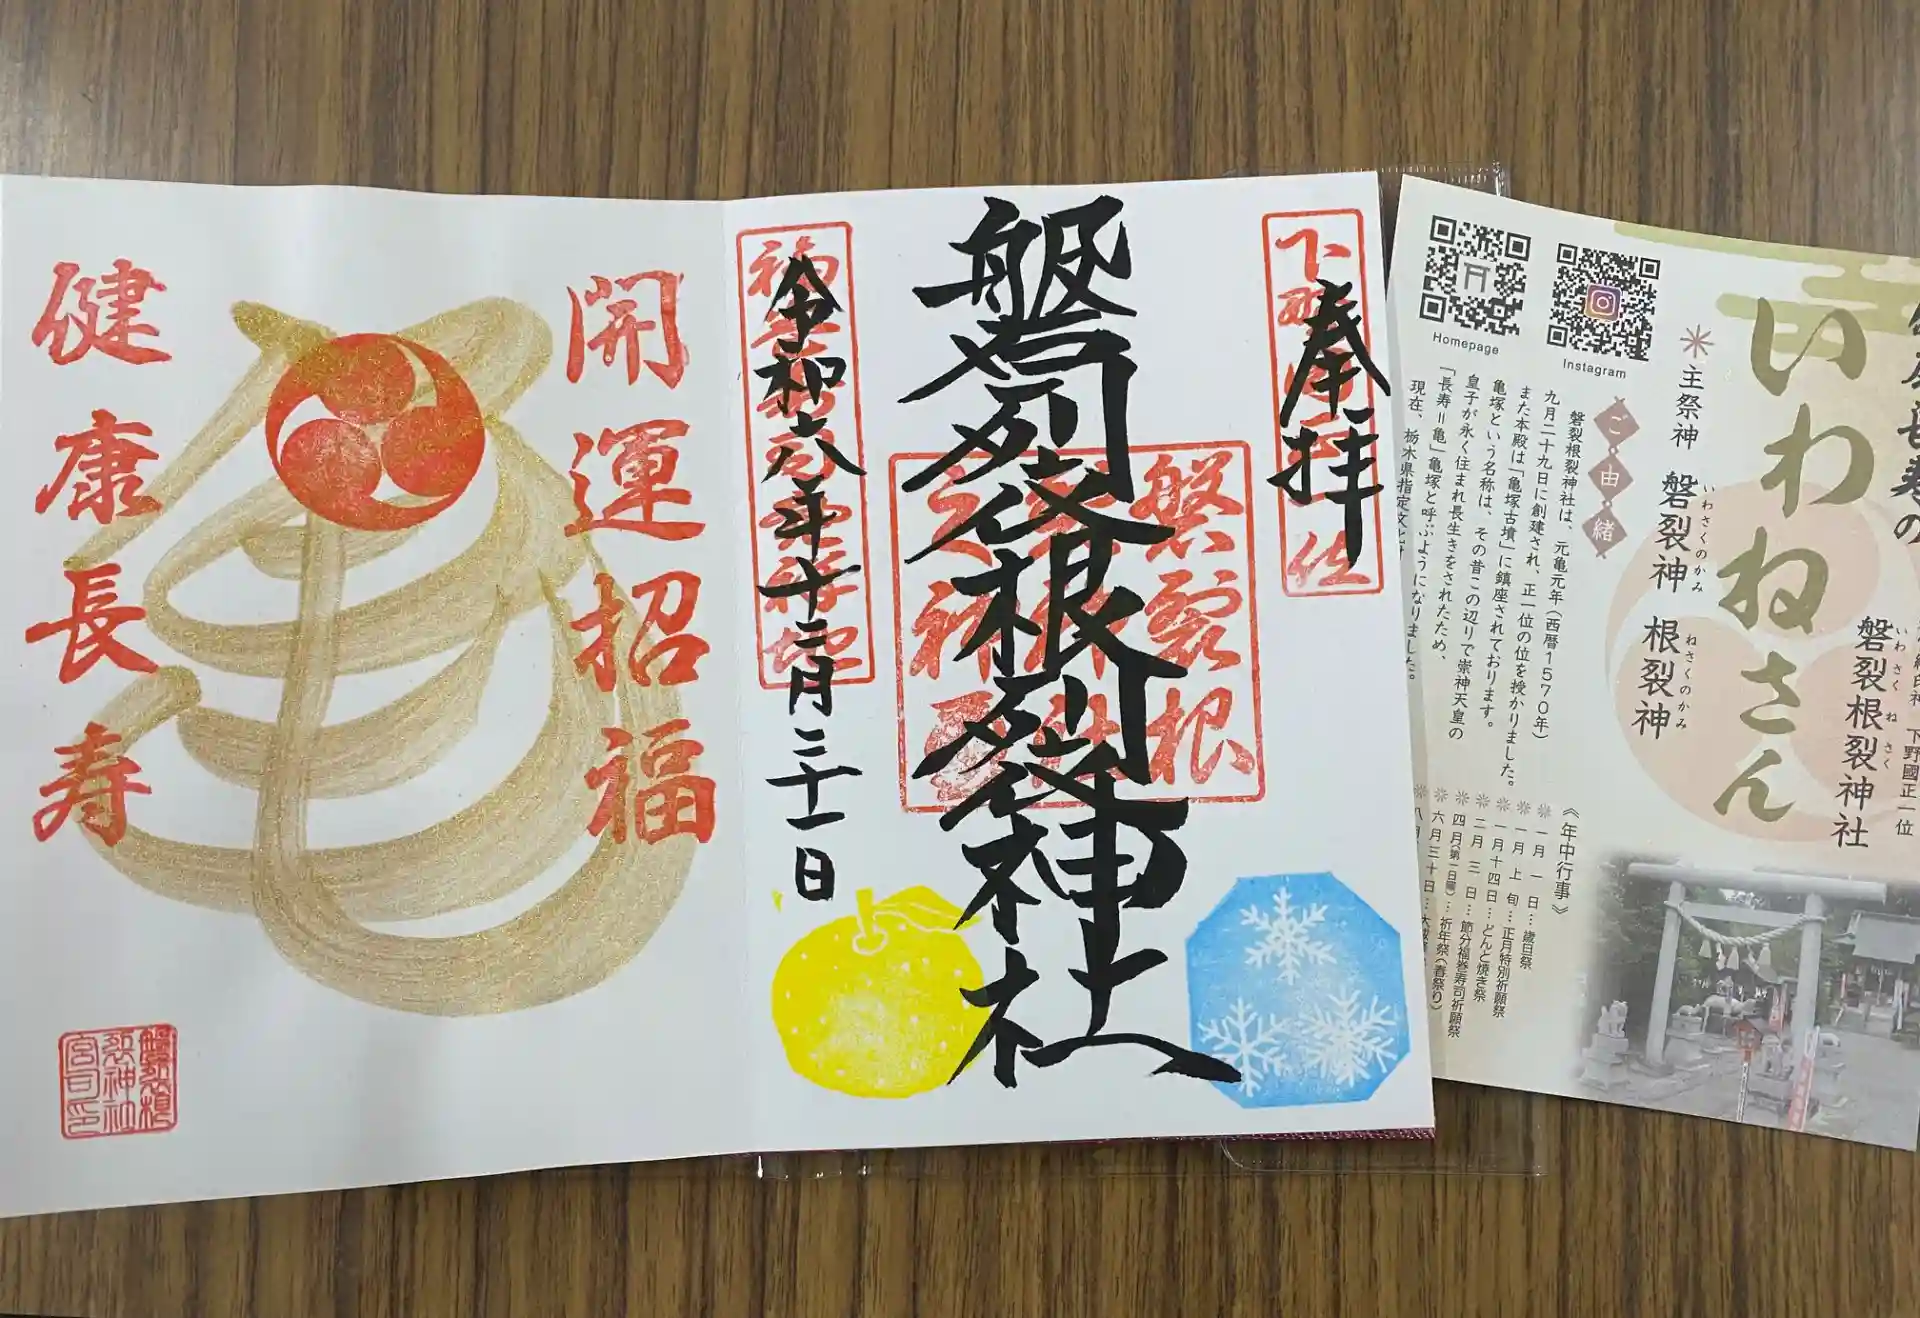 開運招福
健康長寿
亀
磐裂根裂神社
宮司印
奉拝
磐裂根裂神社
令和六年十二月三十一日
磐裂根
裂神社
之神璽
Homepage
Instagram
いわねさん
磐裂根裂神社
いわさくねさく
下野國正一位
主祭神
磐裂神
いわさくのかみ
根裂神
ねさくのかみ
ご由緒
磐裂根裂神社は、元亀元年(西暦1570年)
九月二十九日に創建され、正一位の位を授かりました。
また本殿は「亀塚古墳」に鎮座されております。
亀塚という名称は、その昔この辺りで崇神天皇の
皇子が永く住まれ長生きをされたため、
「長寿=亀」亀塚と呼ぶようになりました。
現在、栃木県指定文化
《年中行事》
一月一日…歳旦祭
一月上旬…正月特別祈願祭
一月十四日…どんど焼き祭
二月三日…節分福巻寿司祈願祭
四月(第一日曜)…祈年祭(春祭り)
六月三十日…大祓